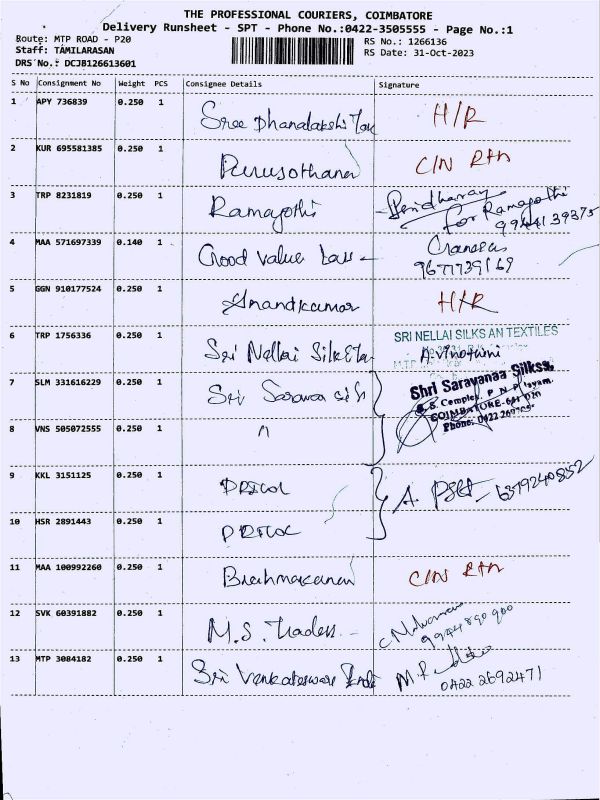 THE PROFESSIONAL COURIERS, COIMBATORE
Delivery Runsheet - SPT - Phone No.:0422-3505555 - Page No.:1
Route: MTP ROAD - P20
RS No.: 1266136
Staff: TAMILARASAN
RS Date: 31-Oct-2023
DRS No.: DCJB126613601
S No Consignment No Weight PCS Consignee Details Signature
1 APY 736839 0.250 1 Sree Dhanalakshi H/R
2 KUR 695581385 0.250 1 Purusothaman C/N Rtn
3 TRP 8231819 0.250 1 Ramajothi
for Ramajothi
9944139375
4 MAA 571697339 0.140 1 Good value
9677739169
5 GGN 910177524 0.250 1 Anandkumar H/R
6 TRP 1756336 0.250 1 Sri Nellai Silk SRI NELLAI SILKS AN TEXTILES
A. Vinothini
7 SLM 331616229 0.250 1 Sri Shri Saravanaa Silkss,
8 VNS 505072555 0.250 1 "
9 KKL 3151125 0.250 1 PRICOL
10 HSR 2891443 0.250 1 PRICOL
11 MAA 100992260 0.250 1 C/N Rtn
12 SVK 60391882 0.250 1 M.S. Traders
9944890900
13 MTP 3084182 0.250 1 Sri Venkateswara
0422 2692471